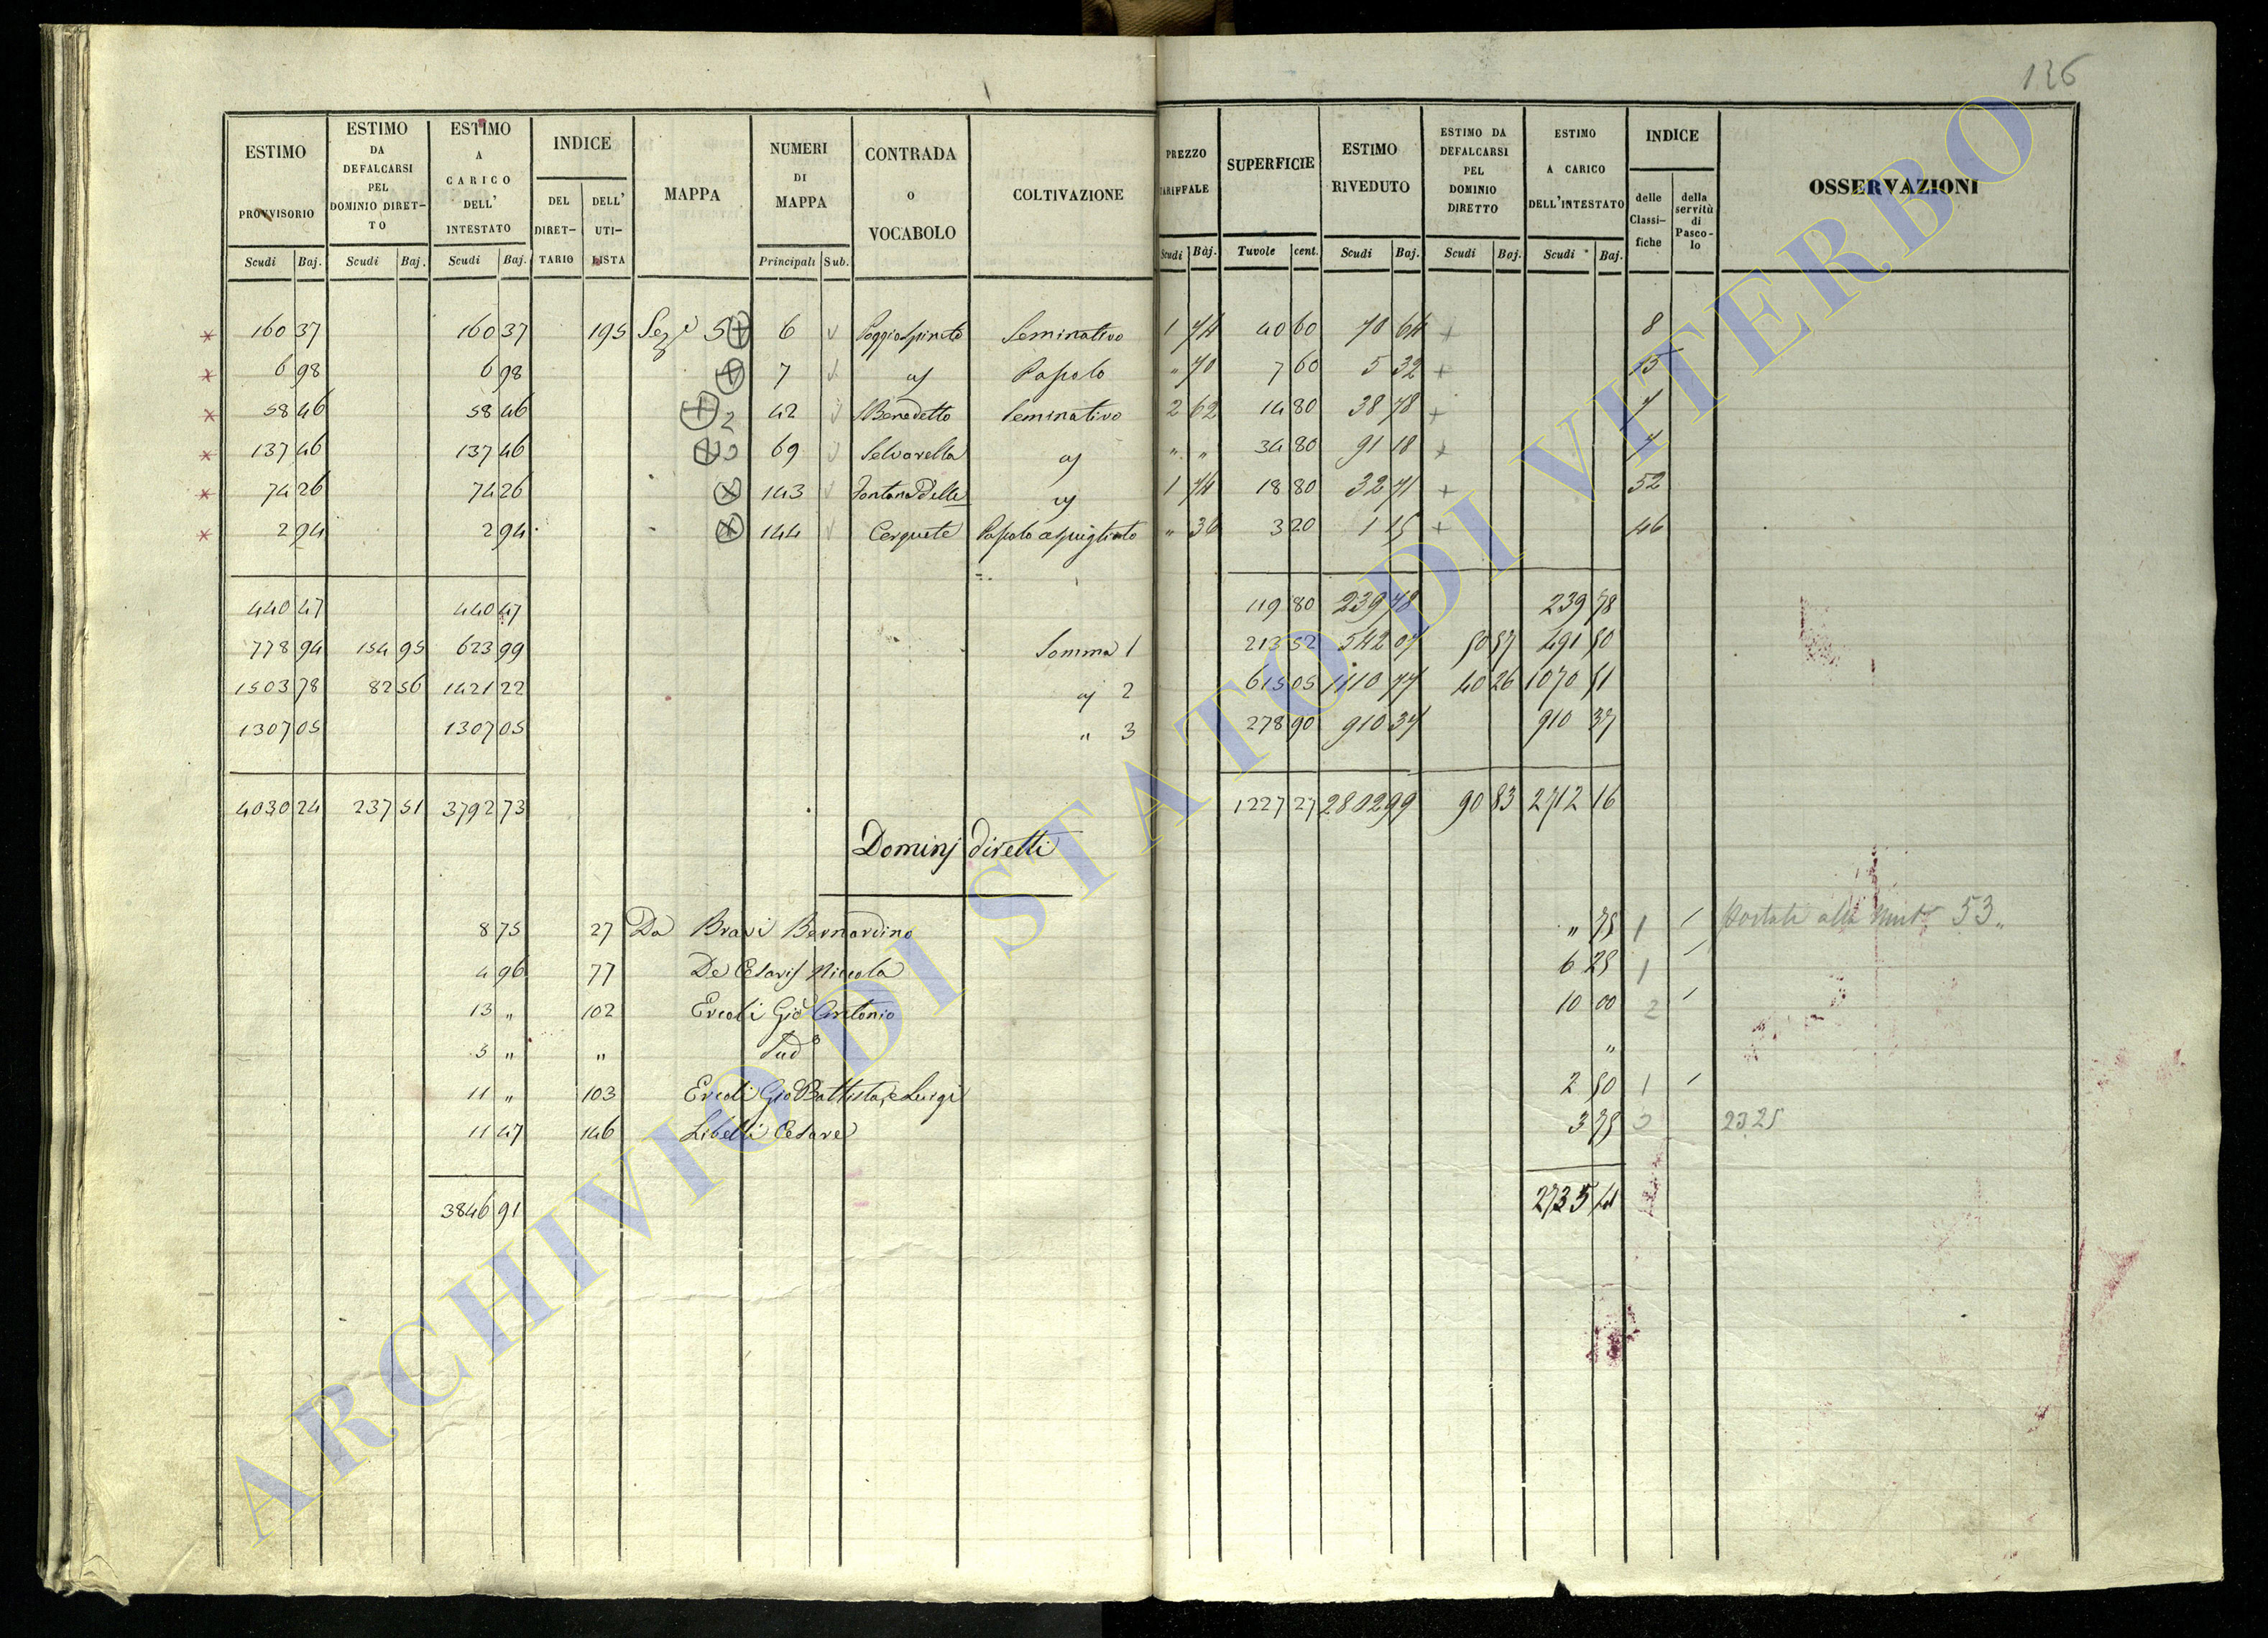 126
ESTIMO PROVVISORIO
ESTIMO DA DEFALCARSI PEL DOMINIO DIRETTO
ESTIMO A CARICO DELL' INTESTATO
INDICE DEL DIRETTARIO DELL' UTILISTA
MAPPA
NUMERI DI MAPPA
CONTRADA o VOCABOLO
COLTIVAZIONE
PREZZO TARIFFALE
SUPERFICIE
ESTIMO RIVEDUTO
ESTIMO DA DEFALCARSI PEL DOMINIO DIRETTO
ESTIMO A CARICO DELL'INTESTATO
INDICE delle Classifiche della servitù di Pascolo
OSSERVAZIONI
Scudi Baj. Scudi Baj. Scudi Baj. Principali Sub. Scudi Baj. Tavole cent. Scudi Baj. Scudi Baj. Scudi Baj.
160 37 160 37 195 Sez 5 6 Poggio Spineto Seminativo 1 74 40 60 70 64 8
6 98 6 98 7 Pascolo " 70 7 60 5 32 15
58 46 58 46 2 42 S Benedetto Seminativo 2 62 14 80 38 78 7
137 46 137 46 69 Selvarella " " 34 80 91 18 7
74 26 74 26 143 Fontana Delle 1 74 18 80 32 71 52
2 94 2 94 144 Cerquete Pascolo cespugliato " 36 3 20 1 15 46
440 47 440 47 119 80 239 78 239 78
778 94 154 95 623 99 Somma 1 213 52 542 07 50 57 491 50
1503 78 82 56 1421 22 2 615 05 1110 77 40 26 1070 51
1307 05 1307 05 " 3 278 90 910 37 910 37
4030 24 237 51 3792 73 1227 27 2802 99 90 83 2712 16
Dominj diretti
8 75 27 Da Bravi Bernardino " 75 1 Portati alla 53
4 96 77 De Cesaris Niccola 6 25 1
13 " 102 Ercoli Gio Antonio 10 00 2
5 " " Sud "
11 " 103 Ercoli Gio Battista, e Luigi 2 50 1
11 47 146 Libelli Cesare 3 75 23 25
3846 91 2735 41
ARCHIVIO DI STATO DI VITERBO